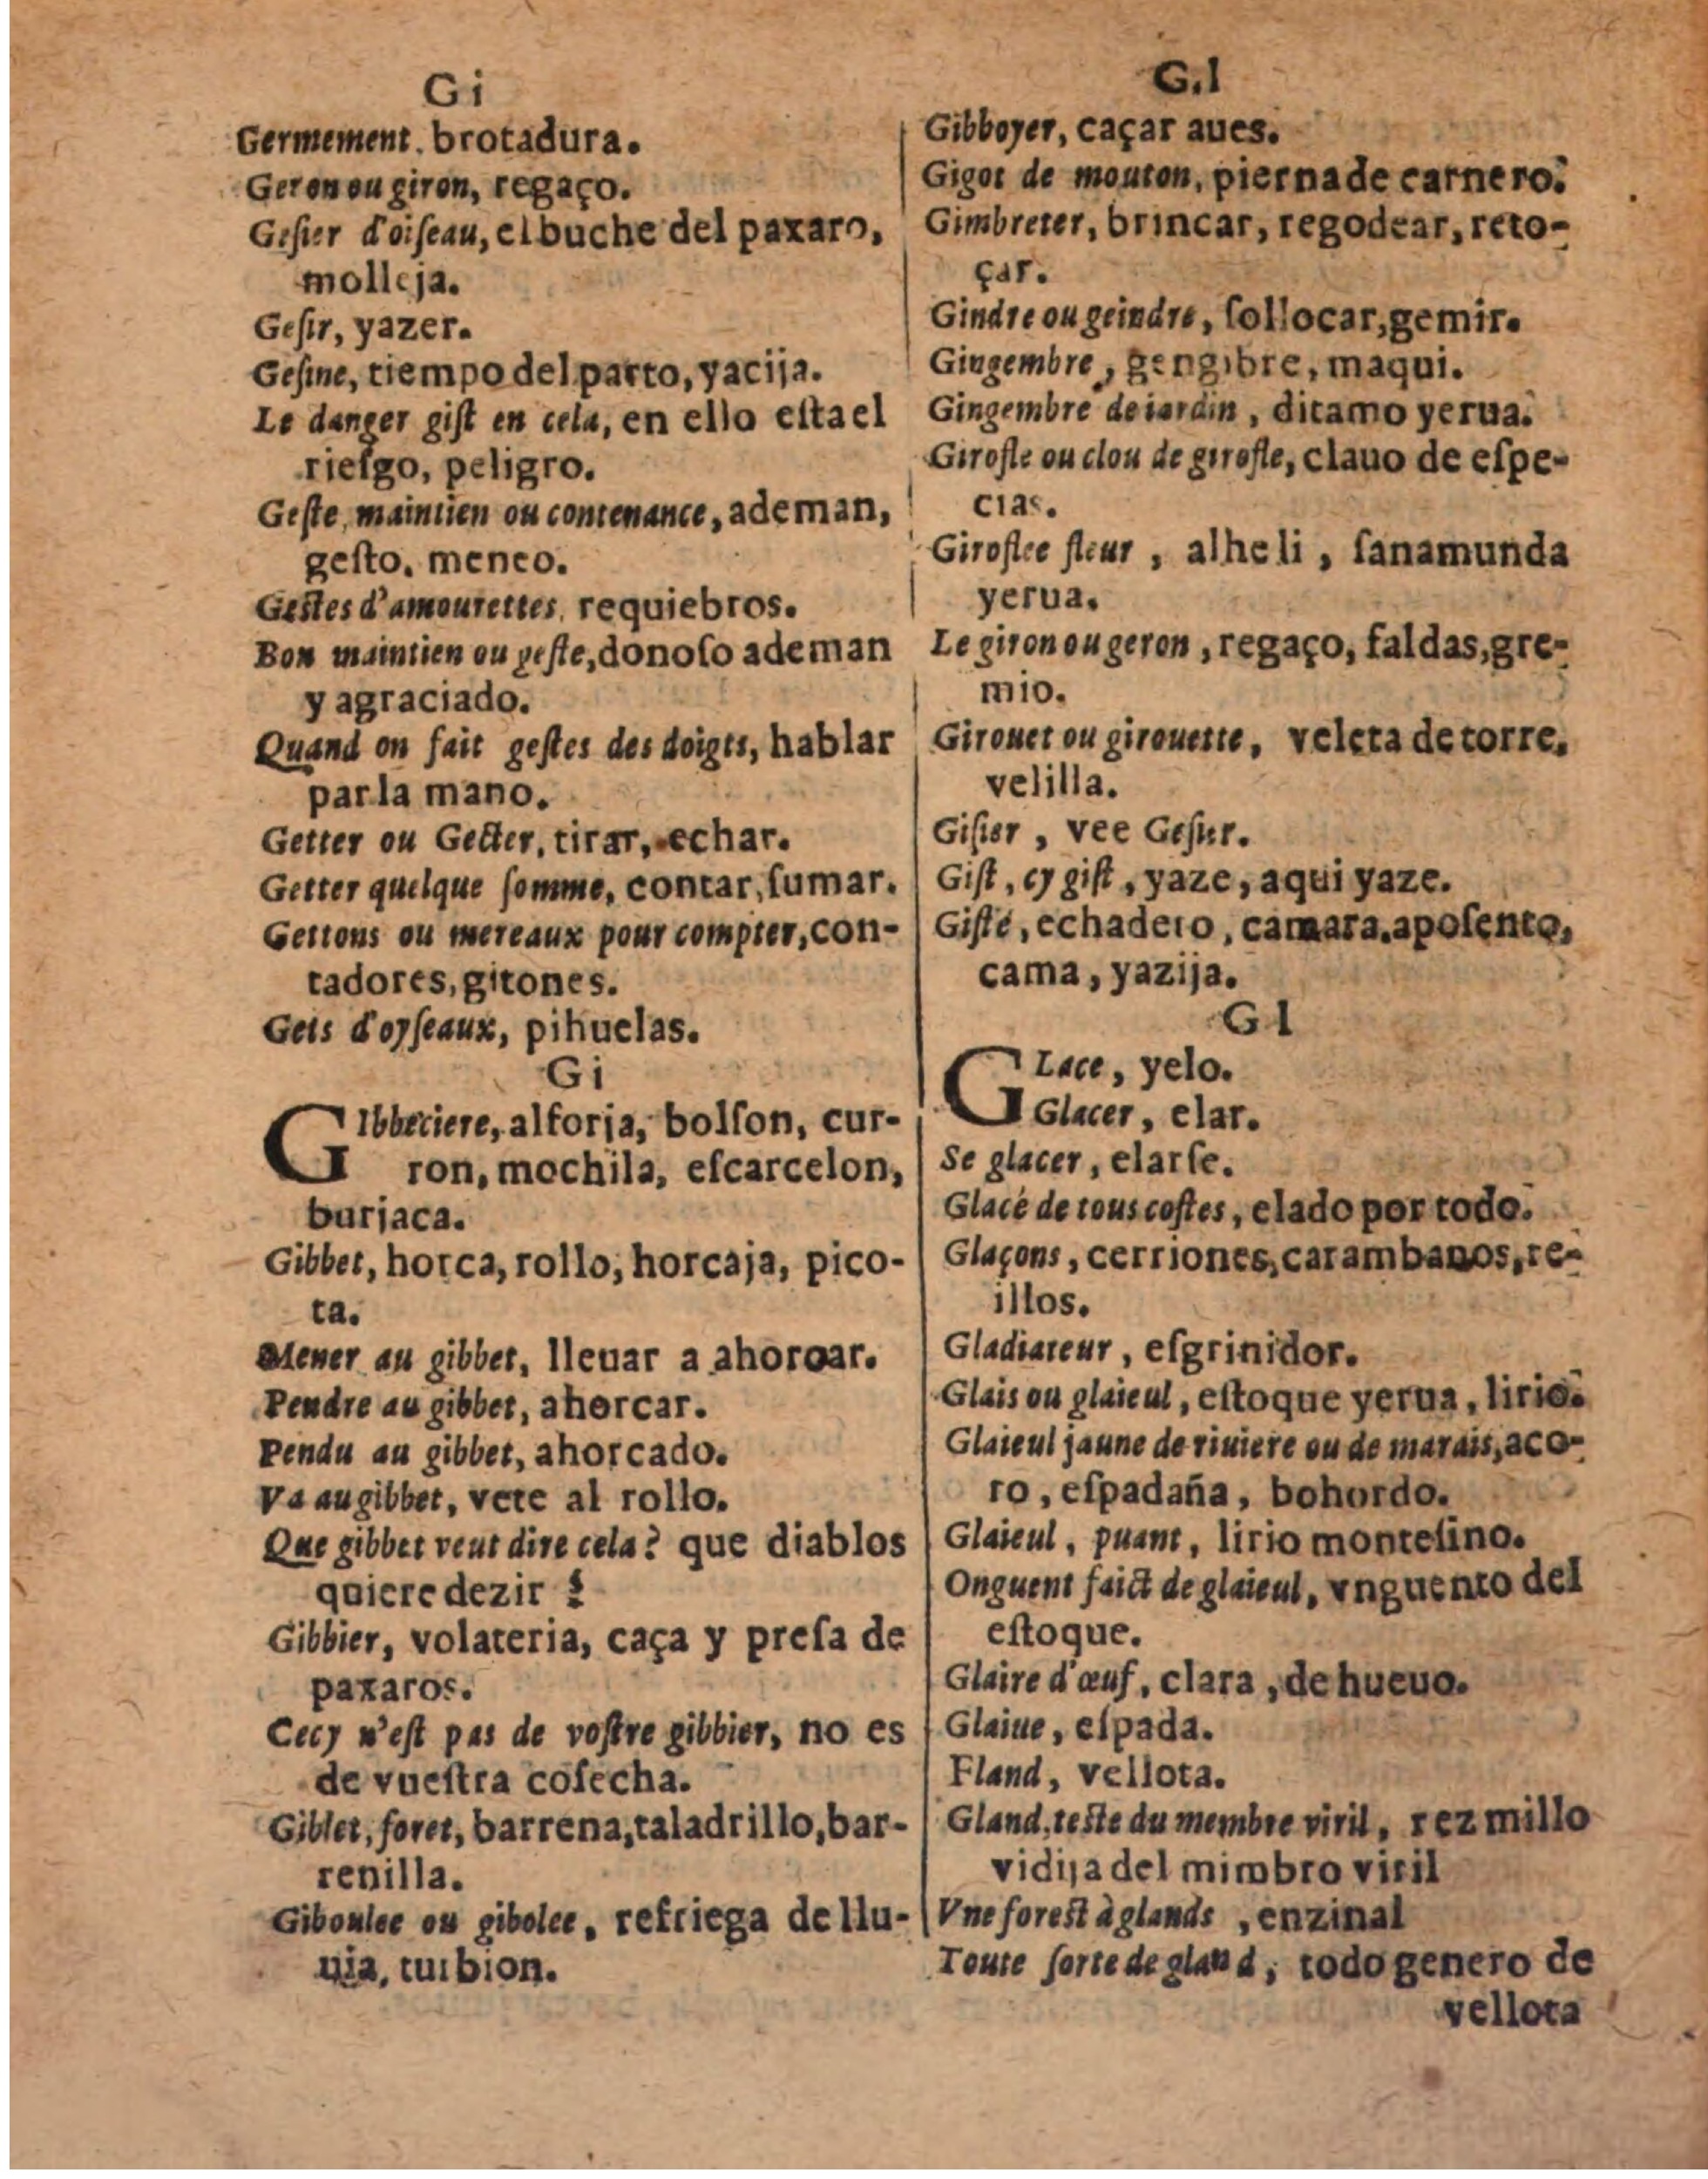 Gi
Germement, brotadura.
Geron ou giron, regaço.
Gesier d'oiſeau, el buche del paxaro,
molleja.
Geſir, yazer.
Geſine, tiempo del parto, yacija.
Le danger giſt en cela, en ello eſta el
rieſgo, peligro.
Geſte, maintien ou contenance, ademan,
geſto, meneo.
Gestes d'amourettes, requiebros.
Bon maintien ou geſte, donoſo ademan
y agraciado.
Quand on fait geſtes des doigts, hablar
par la mano.
Getter ou Gecter, tirar, echar.
Getter quelque ſomme, contar, ſumar.
Gettons ou mereaux pour compter, con-
tadores, gitones.
Gets d'oyſeaux, pihuelas.
Gi
GIbbeciere, alforja, bolſon, cur-
ron, mochila, eſcarcelon,
burjaca.
Gibbet, horca, rollo, horcaja, pico-
ta.
Mener au gibbet, lleuar a ahoroar.
Pendre au gibbet, ahorcar.
Pendu au gibbet, ahorcado.
Va au gibbet, vete al rollo.
Que gibbet veut dire cela? que diablos
quiere dezir ?
Gibbier, volateria, caça y preſa de
paxaros.
Cecy n'eſt pas de voſtre gibbier, no es
de vueſtra coſecha.
Giblet, foret, barrena, taladrillo, bar-
renilla.
Giboulee ou gibolee, refriega de llu-
uia, turbion.
G.l
Gibboyer, caçar aues.
Gigot de mouton, pierna de carnero.
Gimbreter, brincar, regodear, reto-
çar.
Gindre ou geindre, ſollocar, gemir.
Gingembre, gengibre, maqui.
Gingembre de iardin, ditamo yerua.
Girofle ou clou de girofle, clauo de eſpe-
cias.
Giroflee fleur, alheli, ſanamunda
yerua.
Le giron ou geron, regaço, faldas, gre-
mio.
Girouet ou girouette, veleta de torre,
velilla.
Giſier, vee Geſier.
Giſt, cy giſt, yaze, aqui yaze.
Giſte, echadero, camara, apoſento,
cama, yazija.
Gl
GLace, yelo.
Glacer, elar.
Se glacer, elarſe.
Glacé de tous coſtes, elado por todo.
Glaçons, cerriones, carambanos, re-
illos.
Gladiateur, eſgrinidor.
Glais ou glaieul, eſtoque yerua, lirio.
Glaieul jaune de riuiere ou de marais, aco-
ro, eſpadaña, bohordo.
Glaieul, puant, lirio monteſino.
Onguent faict de glaieul, vnguento del
eſtoque.
Glaire d'œuf, clara, de hueuo.
Glaiue, eſpada.
Fland, vellota.
Gland, teste du membre viril, rezmillo
vidija del mimbro viril
Vne forest à glands, enzinal
Toute ſorte de gland, todo genero de
vellota